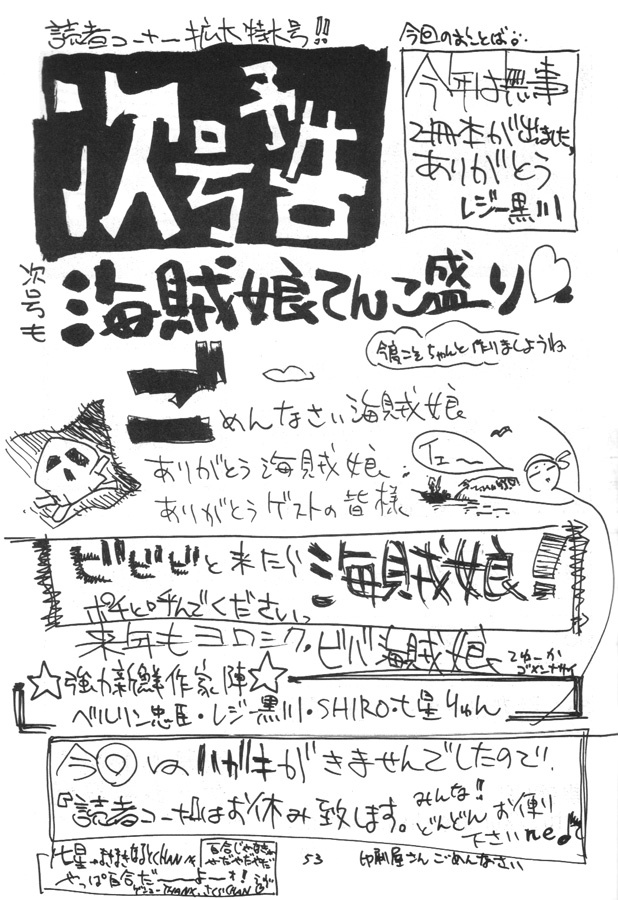 読者コーナー拡大特大号!!
次号予告
今回のまことば
今年は無事
2冊本が出ました。
ありがとう
レジー黒川
次号も
海賊娘てんこ盛り♡
今度こそちゃんと作りましょうね
ごめんなさい海賊娘
ありがとう海賊娘
ありがとうゲストの皆様
イエ〜
ビビビと来たら海賊娘!
ポチと呼んでください。
来年もヨロシク・ビバ海賊娘
てゆーか
ゴメンナサイ
☆強力新鮮作家陣☆
ベルリン忠臣・レジー黒川・SHIRO・七星りゅん
今回はハガキがきませんでしたので、
『読者コーナー』はお休み致します。
みんな!!
どんどんお便り
下さいne♪
やっぱ百合だーーよーォ!
53
印刷屋さんごめんなさい